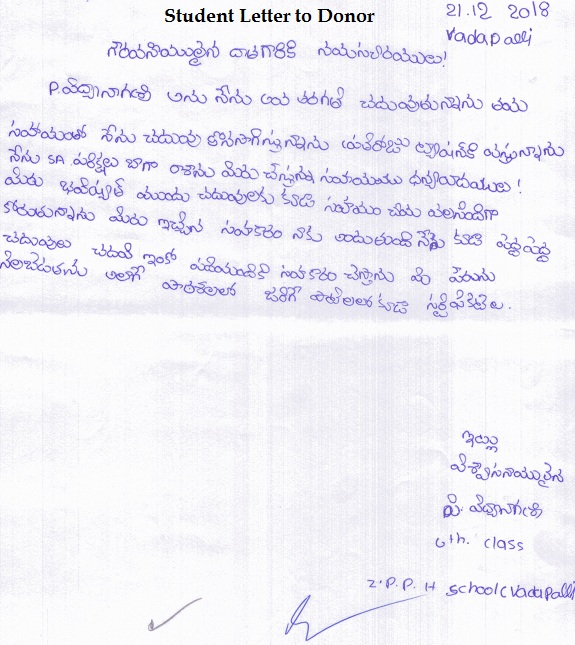 Student Letter to Donor
21.12 2018
Vadapalli
గౌరవనీయులైన దాతగారికి నమస్కారములు!
P. విద్యానాగశ్రీ అను నేను 6వ తరగతి చదువుతున్నాను తమ
సహాయంతో నేను చదువు కొనసాగిస్తున్నాను ప్రతిరోజు ట్యూషన్‌కి వస్తున్నాను
నేను SA పరీక్షలు బాగా రాశాను మీరు చేస్తున్న సహాయము ధన్యవాదములు!
మీరు భవిష్యత్ ముందు చదువులకు కూడా సహాయం చేయ వలసిందిగా
కోరుతున్నాను మీరు ఇచ్చిన సహకారం నాకు అందుతుంది నేను కూడా పెద్ద పెద్ద
చదువులు చదివి ఇంకో పదిమందికి సహకారం చేస్తాను మీ పేరును
నిలబెడతాను అలాగే పాఠశాలలో జరిగే పోటీలలో కూడా సర్టిఫికెట్ల.
ఇట్లు
విశ్వాసనీయులైన
పి. విద్యానాగశ్రీ
6th. class
Z.P.P. H School (Vadapalli